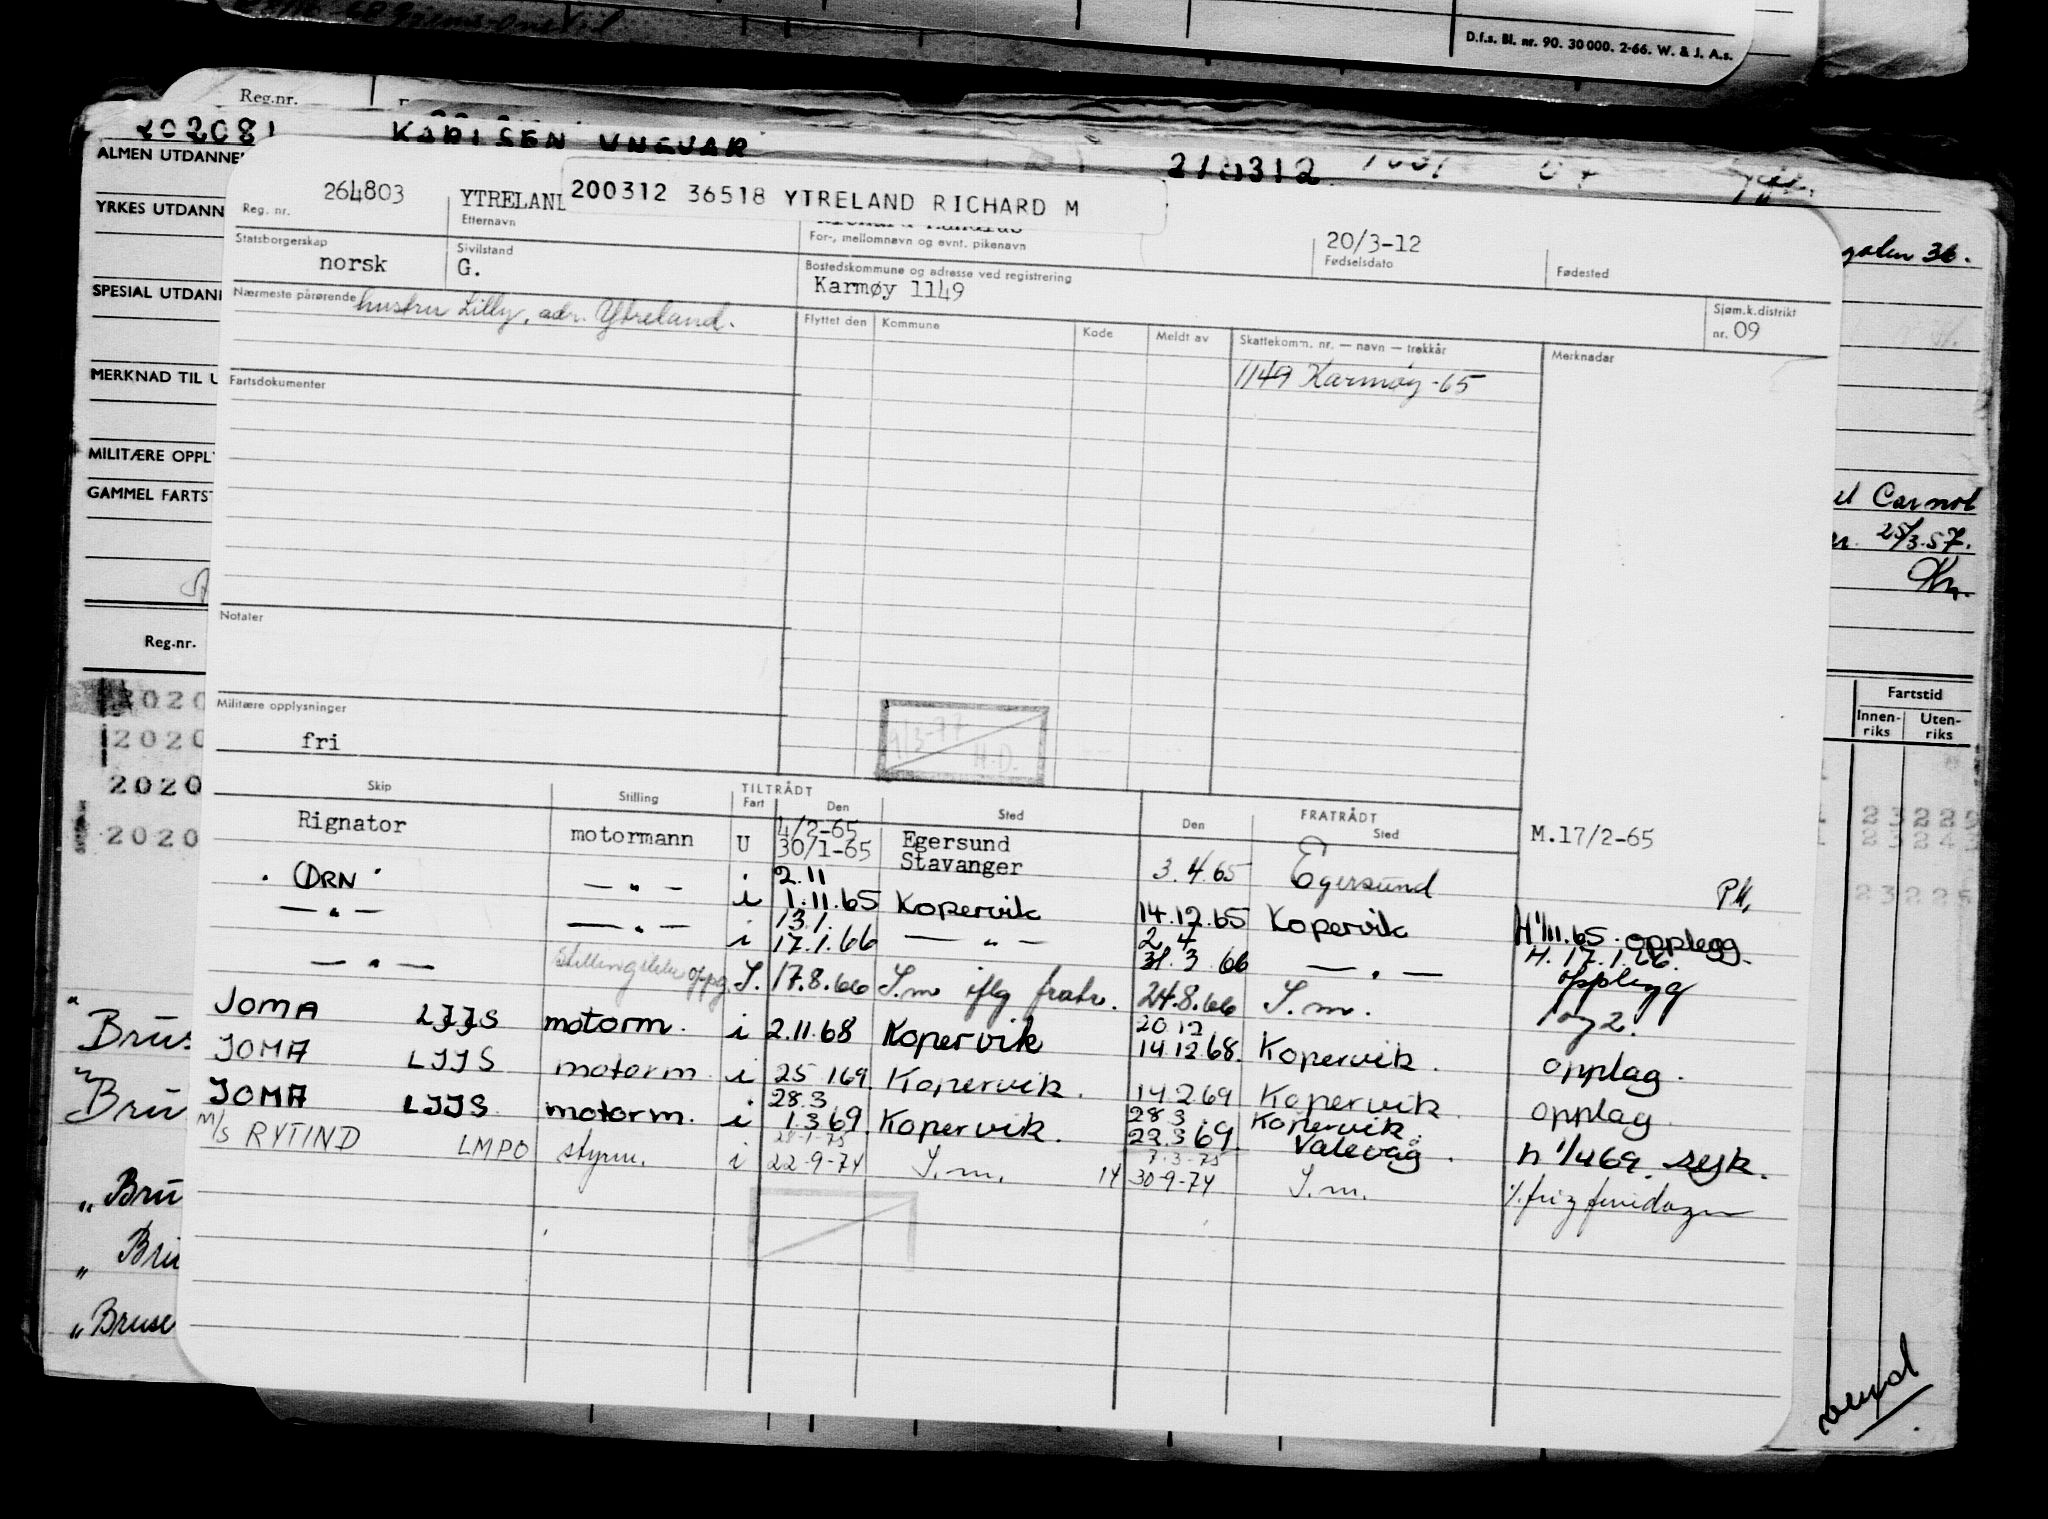 D.f.s. Bl. nr. 90. 30 000. 2-66. W. & J. A.s.
Reg.nr.
202081 KARLSEN YNGVAR 210312
ALMEN UTDANNE
YRKES UTDANN
SPESIAL UTDANN
MERKNAD TIL U
MILITÆRE OPPLY
GAMMEL FARTST
Reg.nr.
2020
2020
2020
2020
Brus
Bru
" Bru
" Bru
" Bruse
36.
Carnot
25/3.57.
Fartstid
Innen-riks Uten-riks
264803 YTRELAND
200312 36518 YTRELAND RICHARD M
20/3-12
Reg. nr. Etternavn For-, mellomnavn og evnt. pikenavn Fødselsdato Fødested
Statsborgerskap Sivilstand Bostedskommune og adresse ved registrering
norsk G. Karmøy 1149
Nærmeste pårørende hustru Lilly, adr. Ytreland.
Sjøm.k.distrikt nr. 09
Flyttet den Kommune Kode Meldt av Skattekomm. nr. — navn — trekkår Merknader
1149 Karmøy -65
Fartsdokumenter
Notater
Militære opplysninger
fri
4/3-77 H.D.
TILTRÅDT FRATRÅDT
Skip Stilling Fart Den Sted Den Sted
Rignator motormann U 4/2-65 30/1-65 Egersund Stavanger 3.4.65 Egersund M.17/2-65
PM.
ØRN — " — i 2.11 1.11.65 Kopervik 14.12.65 Kopervik H 1/11.65 opplegg.
— " — — " — i 13.1. 17.1.66 — " — 2.4 31.3.66 — " — H. 17.1.66. opplegg
— " — oppg. S. 17.8.66 S.m iflg fratr. 24.8.66 S.m. og 2.
JOMA LJJS motorm. i 2.11.68 Kopervik 20.12 14.12.68. Kopervik. opplag.
JOMA LJJS motorm i 25 1 69. Kopervik. 14.2.69 Kopervik. opplag
JOMA LJJS motorm. i 28.3 1.3.69. Kopervik. 28.3 22.3.69. Kopervik Valevåg. h 1/4 69. sejk.
M/S RYTIND LMPO styrm. i 28-1-75 22-9-74 S.m. 14 7-3-75 30-9-74 S.m.